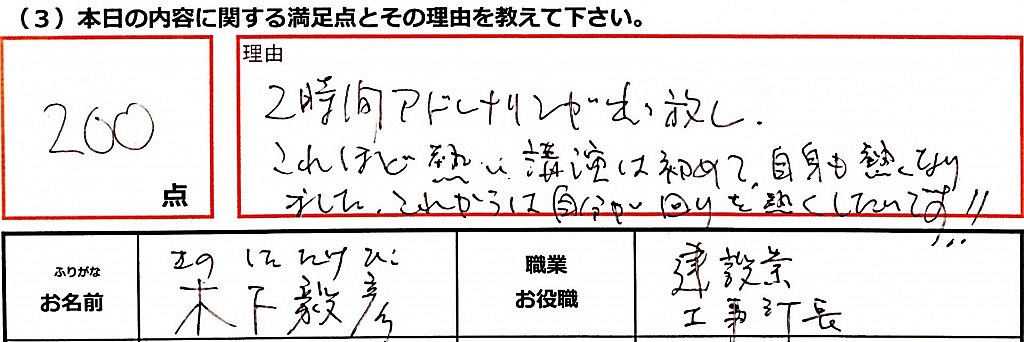 (3)本日の内容に関する満足点とその理由を教えて下さい。
200
点
理由
2時間アドレナリンが出っ放し.
これほど熱い講演は初めて、自身も熱くなり
ました。これからは自分が回りを熱くしたいです!!
ふりがな
お名前
きのした たけひこ
木下毅彦
職業
お役職
建設業
工事部長